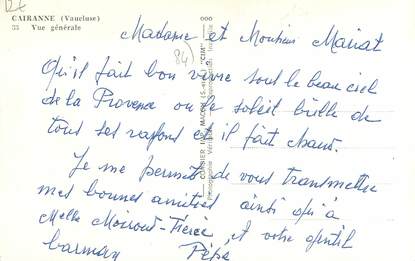 CAIRANNE (Vaucluse)
33 Vue générale
84)
Madame et Monsieur
Qu'il fait bon vivre sous le beau ciel
de la Provence ou le soleil brille de
tous ses rayons et il fait chaud.
Je me permet de vous transmettre
mes bonnes amitiés ainsi qu'à
Melle et votre gentil
barman Pépé
COMBIER IMP. MACON (S.-et-L.) "CIM"